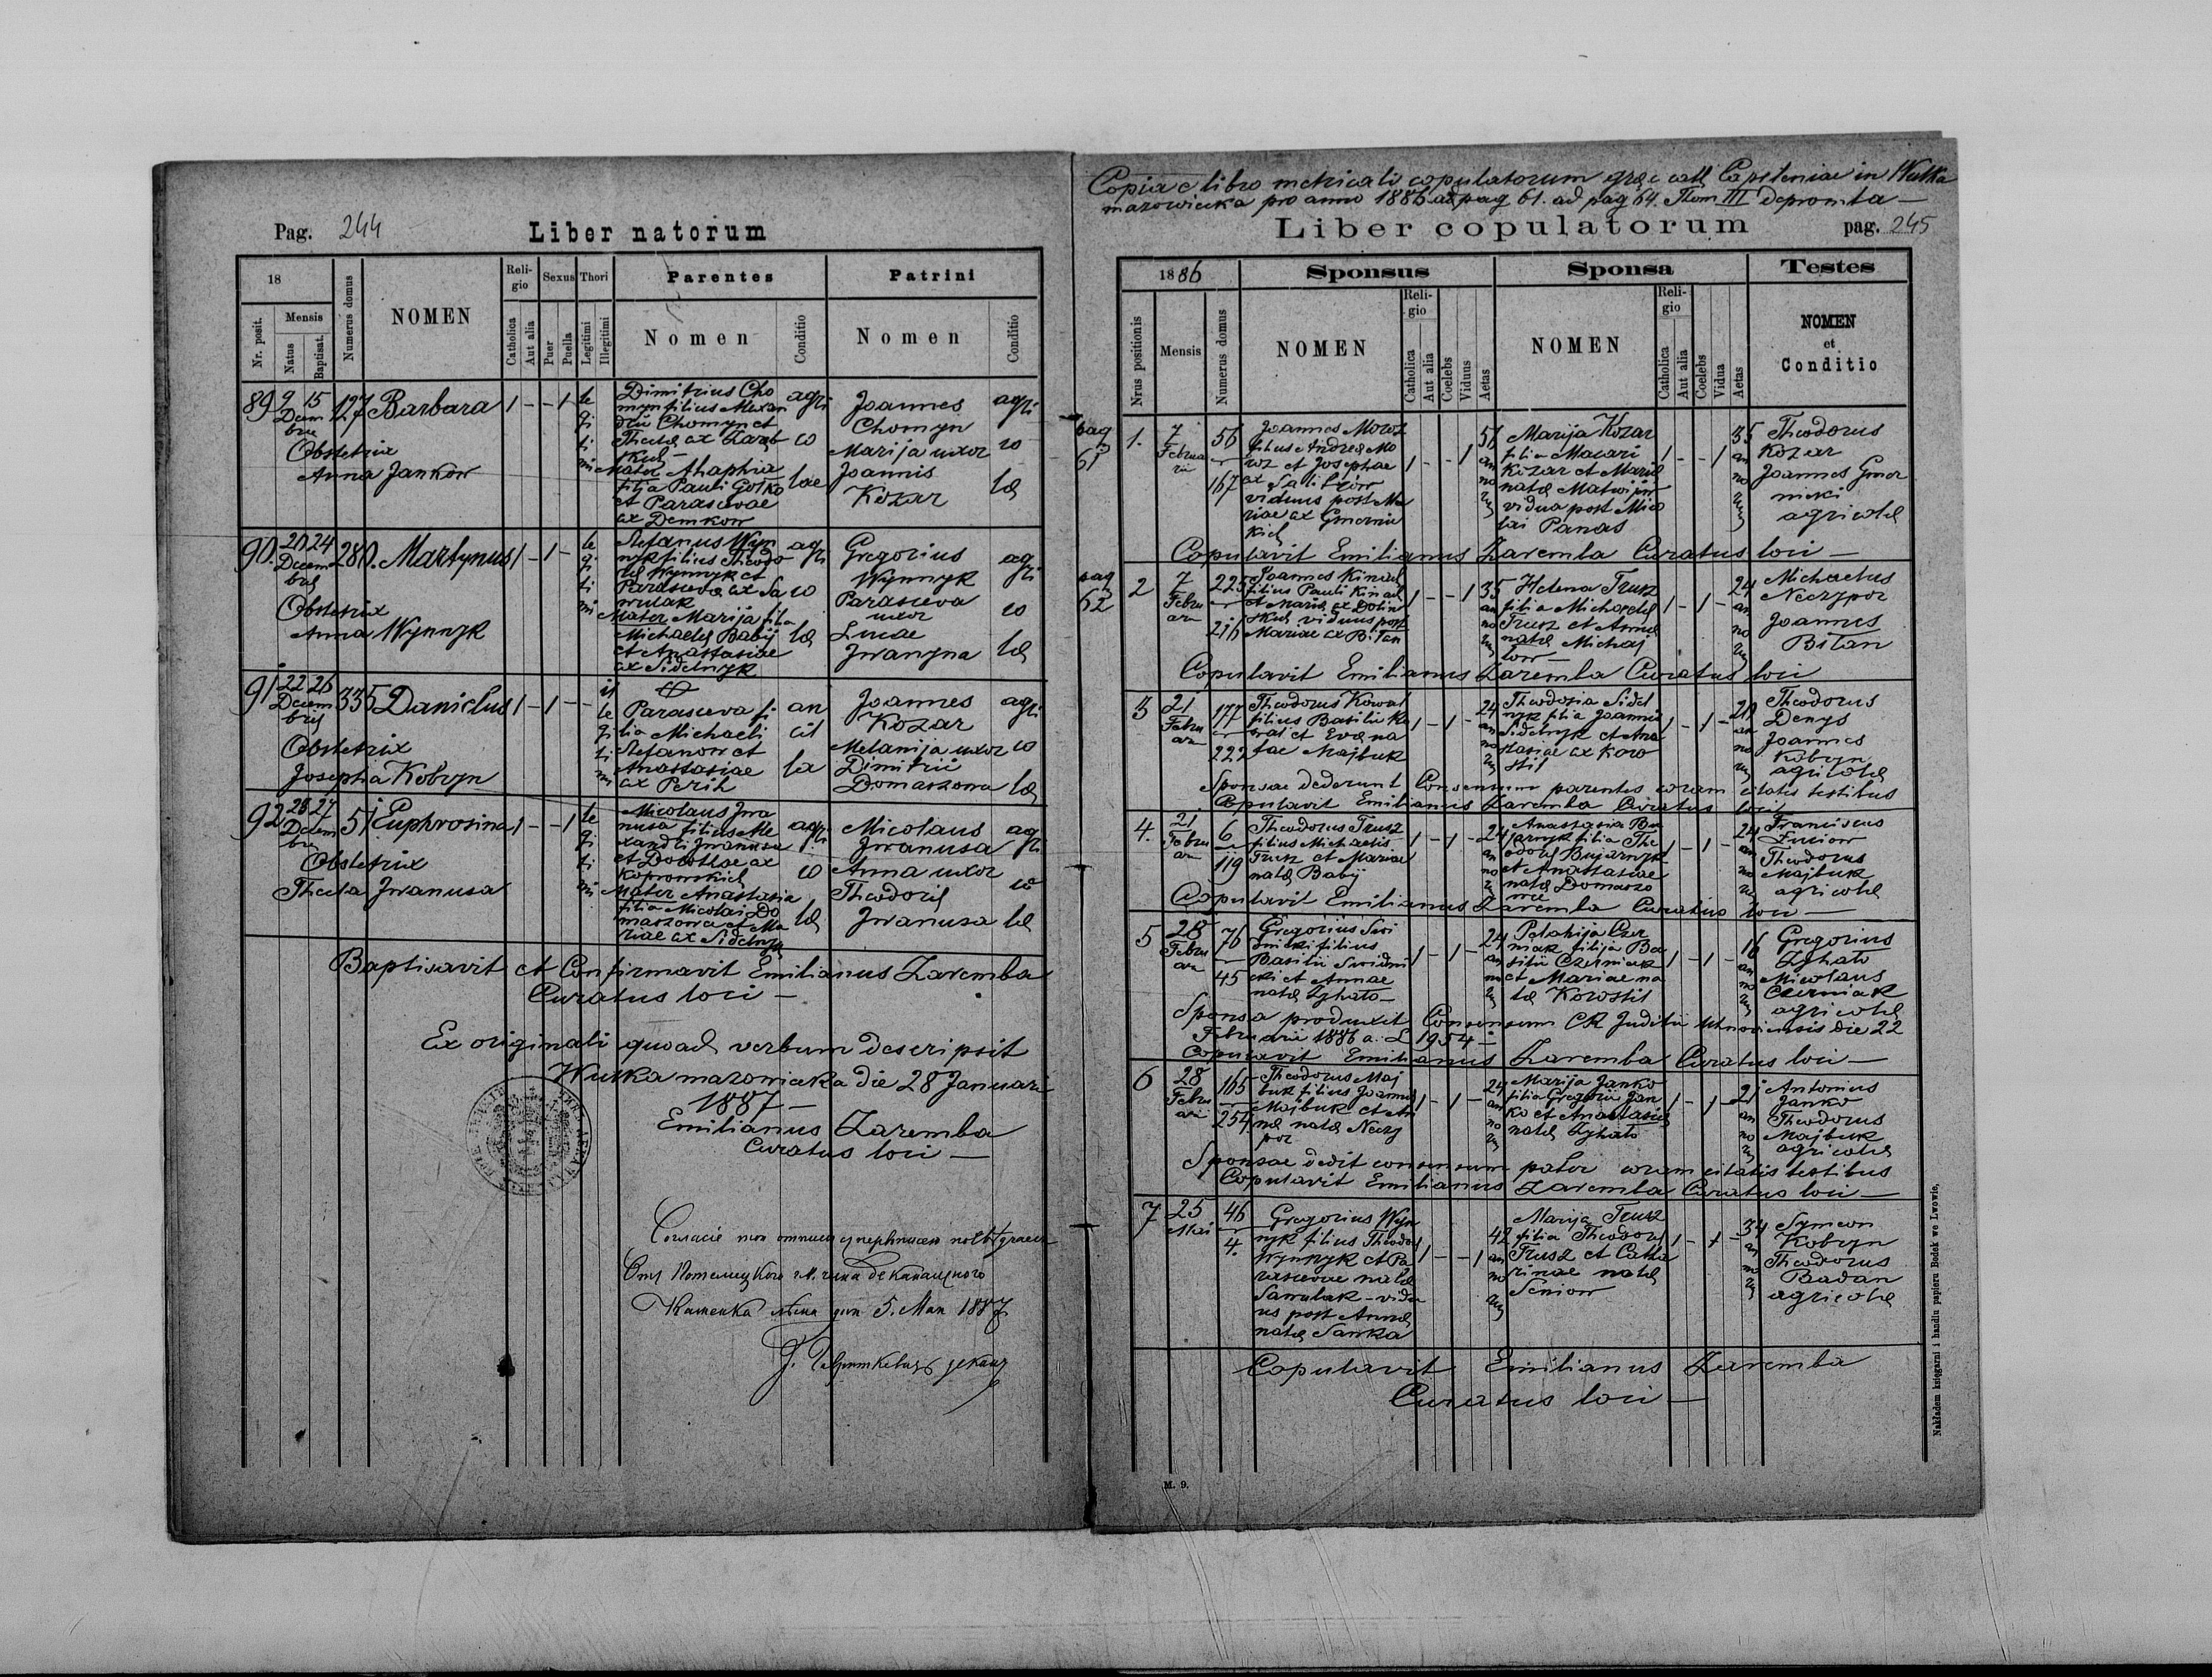 Pag. 244 Liber natorum
18
Nr. posit.
Mensis
Natus
Baptisat.
Numerus domus
NOMEN
Religio
Catholica
Aut alia
Sexus
Puer
Puella
Thori
Legitimi
Illegitimi
Parentes
Nomen
Conditio
Patrini
Nomen
Conditio
89 9 15 Decembris 127 Barbara 1 - - 1 legitimi
Obstetrix
Anna Jankow
Dimitrius Cho
myn filius Alexan
drii Chomyn et
Theclae ex Zarub
skich
Mater Ahaphia
filia Pauli Gotko
et Parascevae
ex Demkow
agricolae
Joannes
Chomyn
Marija uxor
Joannis
Kozar
agricolae
90. 20 24 Decembris 280. Martynus 1 - 1 - legitimi
Obstetrix
Anna Wynnyk
Stefanus Wyn
nyk filius Theodo
ris Wynnyk et
Parasceva ex Sa
wulak
Mater Marija filia
Michaelis Babij
et Anastasiae
ex Sidelnyk
agricolae
Gregorius
Wynnyk
Parasceva
uxor
Lucae
Jwanyna
agricolae
91 22 26 Decembris 335 Daniclus 1 - 1 - - illegitimi
Obstetrix
Josepha Kobryn
Parasceva fi
lia Michaeli
Stefanow et
Anastasiae
ex Perih
ancilla
Joannes
Kozar
Melanija uxor
Dimitrii
Domaszowa
agricolae
92 23 27 Decembris 51 Euphrosina 1 - - 1 legitimi
Obstetrix
Thecla Jwanusa
Nicolaus Jwa
nusa filius Ale
xandri Jwanusa
et Dorotheae ex
Koprowskich
Mater Anastasia
filia Nicolai Do
maszowa et Ma
riae ex Sidelnyk
agricolae
Nicolaus
Jwanusa
Anna uxor
Theodoris
Jwanusa
agricolae
Baptisavit et Confirmavit Emilianus Zaremba
Curatus loci —
Ex originali quoad verbum descripsit
Wulka mazowiecka die 28 Januari
1887 —
Emilianus Zaremba
Curatus loci —
5. Мая 1887
Copia e libro metricali copulatorum graec cath Capellaniae in Wulka
mazowiecka pro anno 1886 ad pag 61. ad pag 64. Tom III depromta —
Liber copulatorum pag. 245
1886
Nrus positionis
Mensis
Numerus domus
Sponsus
NOMEN
Religio
Catholica
Aut alia
Coelebs
Viduus
Aetas
Sponsa
NOMEN
Religio
Catholica
Aut alia
Coelebs
Vidua
Aetas
Testes
NOMEN
et
Conditio
pag 61
1. 7 Februarii 56 167
Joannes Moroz
filius Andreae Mo
roz et Josephae
ex Salitrow
viduus post Ma
riae ex Gmernic
kich
1 - - 1 56 annorum
Marija Kozar
filia Macari
Kozar et Mariae
natae Matwijow
vidua post Nico
lai Panas
1 - - 1 35 annorum
Theodorus
Kozar
Joannes Gmer
nicki
agricolae
Copulavit Emilianus Zaremba Curatus loci —
pag 62
2 7 Februari 225 216
Joannes Kinach
filius Pauli Kinach
et Mariae ex Dolin
skich viduus post
Mariae ex Bitan
1 - - 1 35 annorum
Helena Trusz
filia Michaelis
Trusz et Annae
natae Michaj
low —
1 - 1 - 24 annorum
Michaelus
Neczypor
Joannes
Bitan
Copulavit Emilianus Zaremba Curatus loci
3 21 Februari 177 222
Theodorus Kowal
filius Basilii Ko
wal et Eva na
tae Majbuk
1 - 1 - 24 annorum
Theodozia Sidel
nyk filia Joannis
Sidelnyk et Ana
stasiae ex Koro
stil
1 - 1 - 20 annorum
Theodorus
Denys
Joannes
Kobryn
agricolae
Sponsae dederunt Consensum parentes coram citatis testibus
Copulavit Emilianus Zaremba Curatus loci
4. 21 Februari 6 119
Theodorus Trusz
filius Michaelis
Trusz et Mariae
natae Babij
1 - 1 - 24 annorum
Anastasia Bu
jarnyk filia The
odoris Bujarnyk
et Anastasiae
natae Domaszo
wa
1 - 1 - 24 annorum
Franciscus
Theodorus
Majbuk
agricolae
Copulavit Emilianus Zaremba Curatus loci —
5 28 Februari 76 45
Gregorius Swi
dnicki filius
Basilii Swidni
cki et Annae
natae Zyhalo —
1 - 1 - 24 annorum
Pelahija Czer
niak filija Ba
silii Czerniak
et Mariae na
tae Korostil
1 - 1 - 16 annorum
Gregorius
Zyhalo
Nicolaus
Czerniak
agricolae
Sponsa produxit Consensum CR Juditii Uhnoviensis die 22
Februarii 1886 a. L 1954 —
Copulavit Emilianus Zaremba Curatus loci —
6 28 Februari 165 254
Theodorus Maj
buk filius Joannis
Majbuk et An
nae natae Neczy
por
1 - 1 - 24 annorum
Marija Janko
filia Gregorii Jan
ko et Anastasiae
natae Zyhalo
1 - 1 - 21 annorum
Antonius
Janko
Theodorus
Majbuk
agricolae
Sponsae dedit consensum pater coram citatis testibus
Copulavit Emilianus Zaremba Curatus loci —
7 25 Mai 46 4.
Gregorius Wyn
nyk filius Theodoris
Wynnyk et Pa
rascevae natae
Sawulak - vidu
us post Annae
natae Sawka
1 - - 1 42 annorum
Marija Trusz
filia Theodoris
Trusz et Catha
rinae natae
Seniow
1 - 1 - 34 annorum
Symeon
Kobryn
Theodorus
Badan
agricolae
Copulavit Emilianus Zaremba
Curatus loci —
M. 9.
Nakładem księgarni i handlu papieru Bodek we Lwowie.